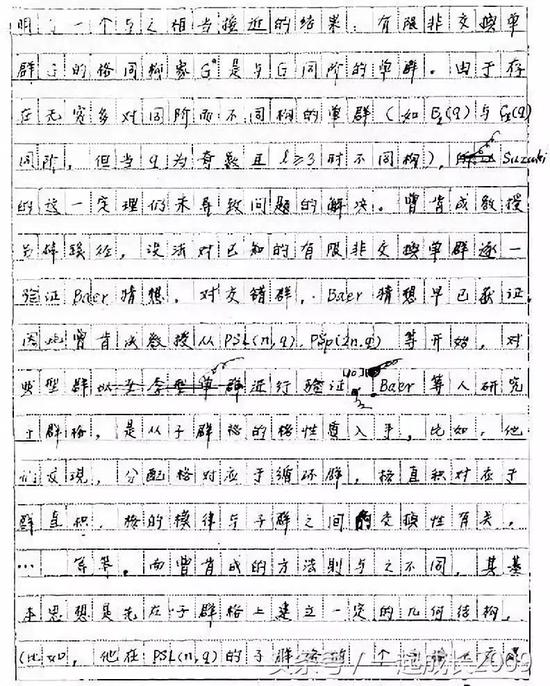 明了一个与之相当接近的结果：有限非交换单
群G的格同构象G*是与G同阶的单群。由于存
在无穷多对同阶而不同构的单群（如Bₗ(q)与Cₗ(q)
同阶，但当q为奇数且l≥3时不同构），Suzuki
的这一定理仍未导致问题的解决。曾肯成教授
另辟蹊径，设法对已知的有限非交换单群逐一
验证Baer猜想。对交错群，Baer猜想早已获证。
因此曾肯成教授从PSL(n,q)，PSp(2n,q)等开始，对
典型群进行验证[10]。Baer等人研究
子群格，是从子群格的格性质入手，比如，他
们发现，分配格对应于循环群，格直积对应于
群直积，格的模律与子群之间的交换性有关，
…等等。而曾肯成的方法则与之不同，其基
本思想是先在子群格上建立一定的几何结构，
（比如，他在PSL(n,q)的子群格的一个
头条号/一起成长2009